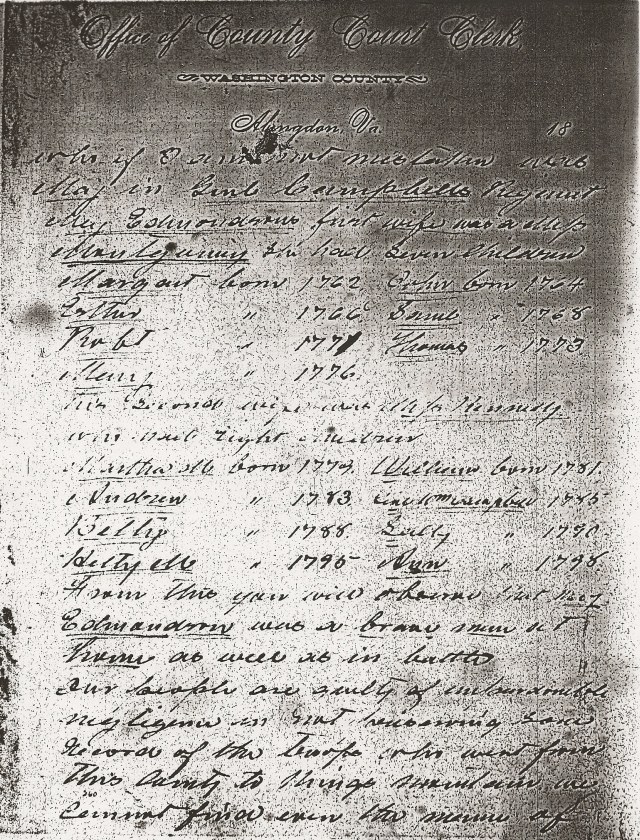 Office of County Court Clerk,
WASHINGTON COUNTY
Abingdon, Va. 18
who if I am not mistaken was
Maj in Genl Campbells Regiment
Maj Edmondsons first wife was a Miss
Montgomery He had Seven Children
Margaret born 1762 John born 1764
Esther " 1766 Saml " 1768
Robt " 1771 Thomas " 1773
Mary " 1776
his Second wife was Miss Kennedy
who had Eight Children
Martha M born 1779. William born 1781.
Andrew " 1783 Campbell 1785
Betsy " 1788 Sally " 1790
Hetty M " 1795 Ann " 1798
From this you will observe that Maj
Edmondson was a brave man at
Home as well as in battle
Our people are guilty of unpardonable
negligence in not preserving some
Record of the troops who went from
this County to Kings mountain we
cannot find even the name of